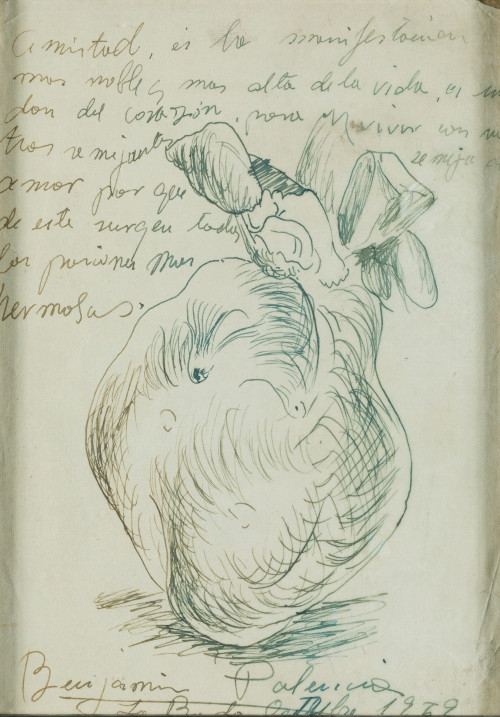 Amistad, es la manifestacion
mas noble y mas alta de la vida, es un
don del corazón, para vivir con
tros semejantes
amor por que
de este surgen todas
las pasiones mas
hermosas.
Benjamin Palencia
1979